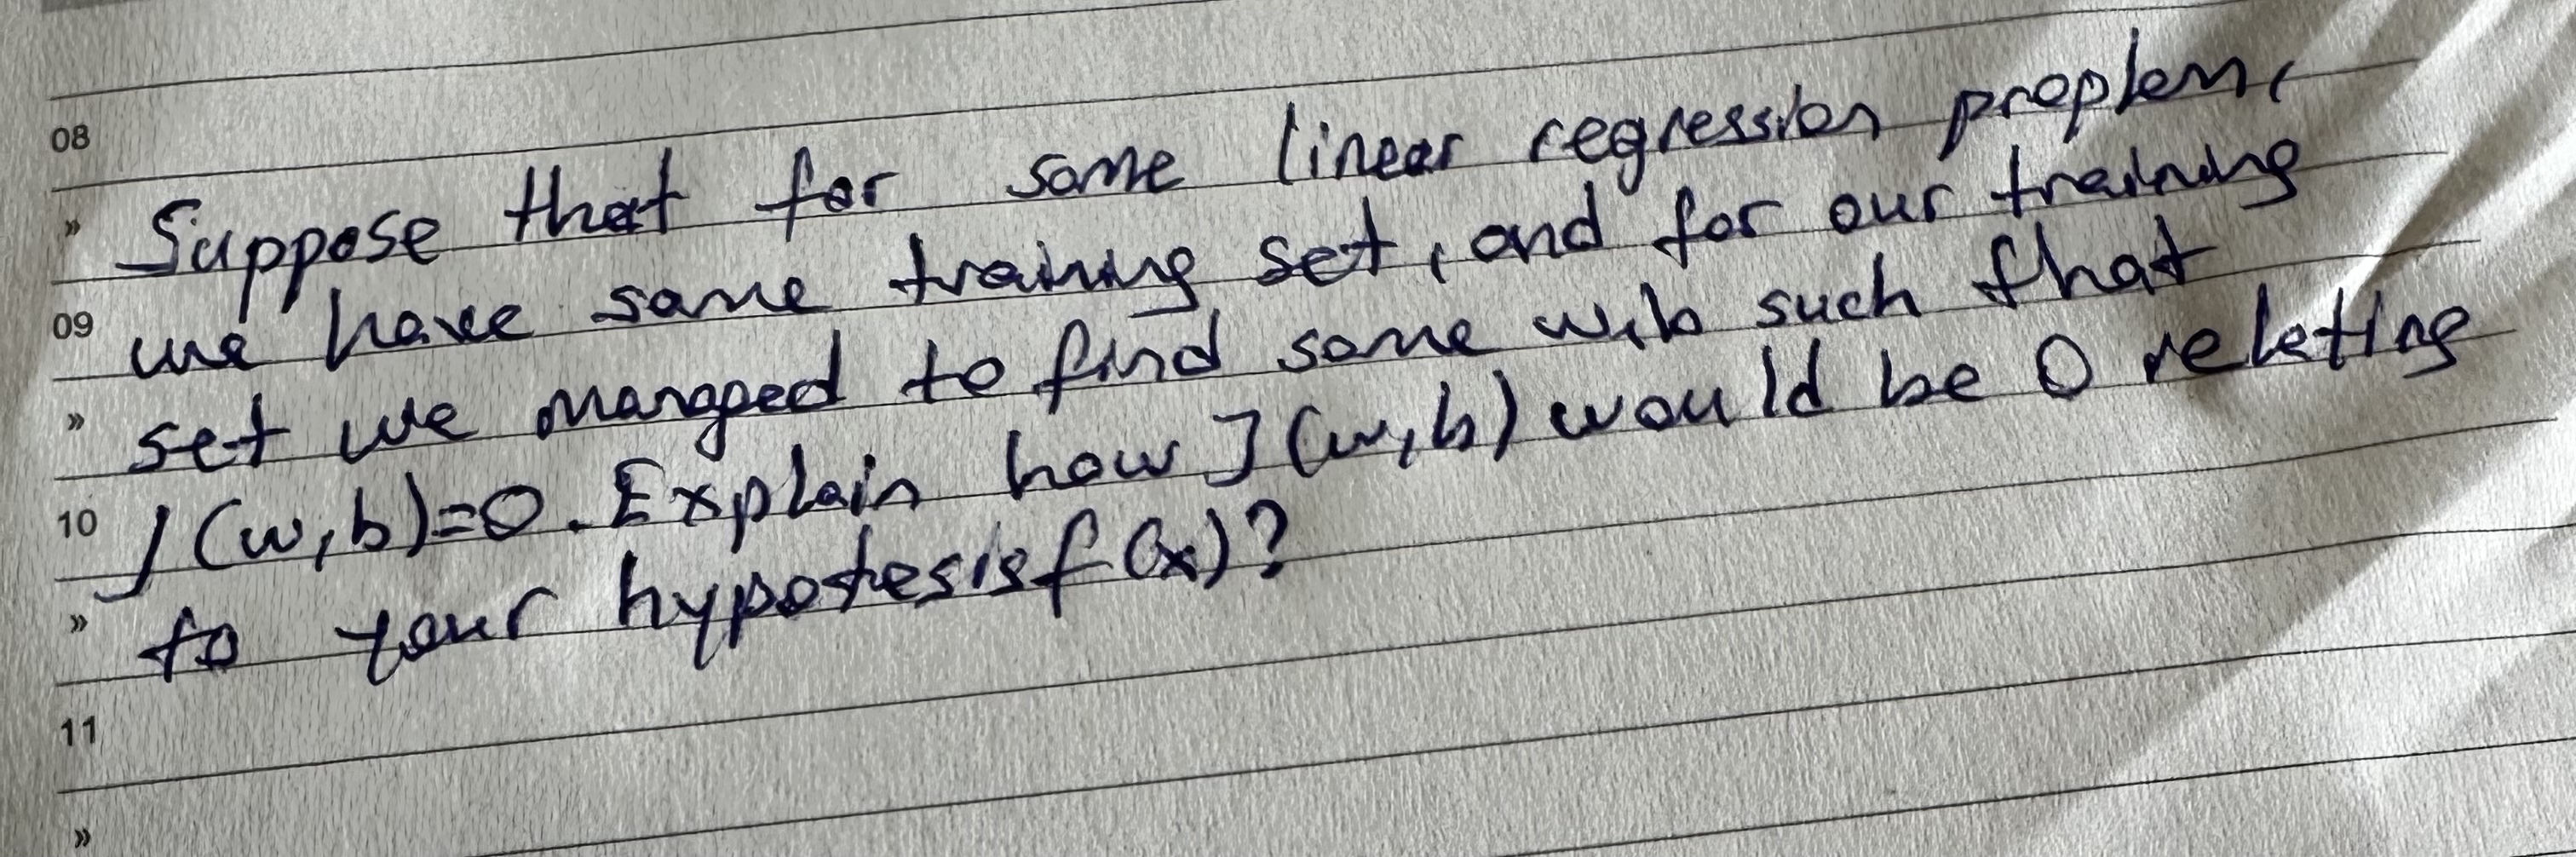 08
» Suppose that for some linear regression proplem,
09 we have some training set, and for our training
» set we managed to find some w,b such that
10 J(w,b)=0. Explain how J(w,b) would be 0 releting
» to your hypotesis f(x)?
11
»